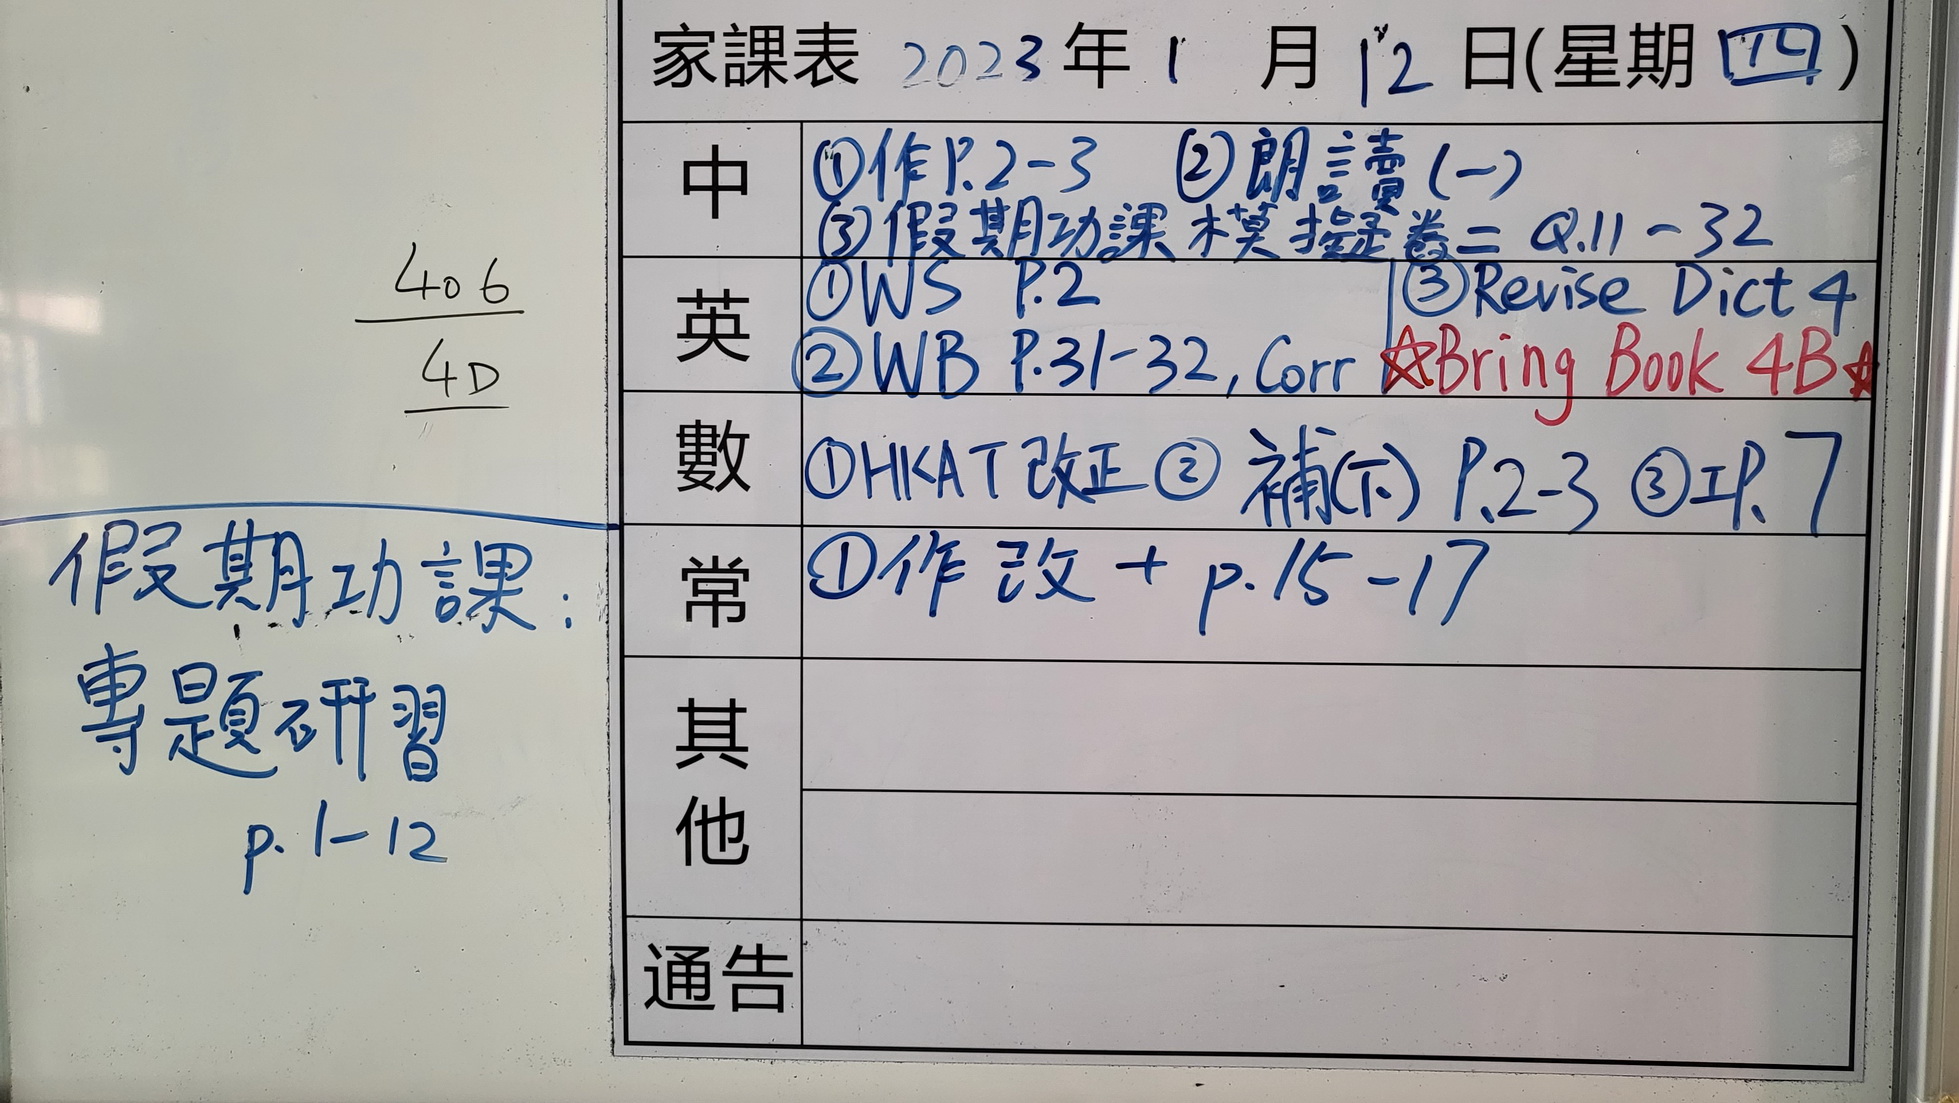 家課表 2023年1月12日(星期四)
中
①作P.2-3 ②朗讀(一)
③假期功課模擬卷二 Q.11-32
英
①WS P.2 ③Revise Dict 4
②WB P.31-32, Corr ☆Bring Book 4B☆
數
①HKAT改正 ②補(下) P.2-3 ③工P.7
常
①作改 + p.15-17
其他
通告
406
4D
假期功課:
專題研習
p. 1-12